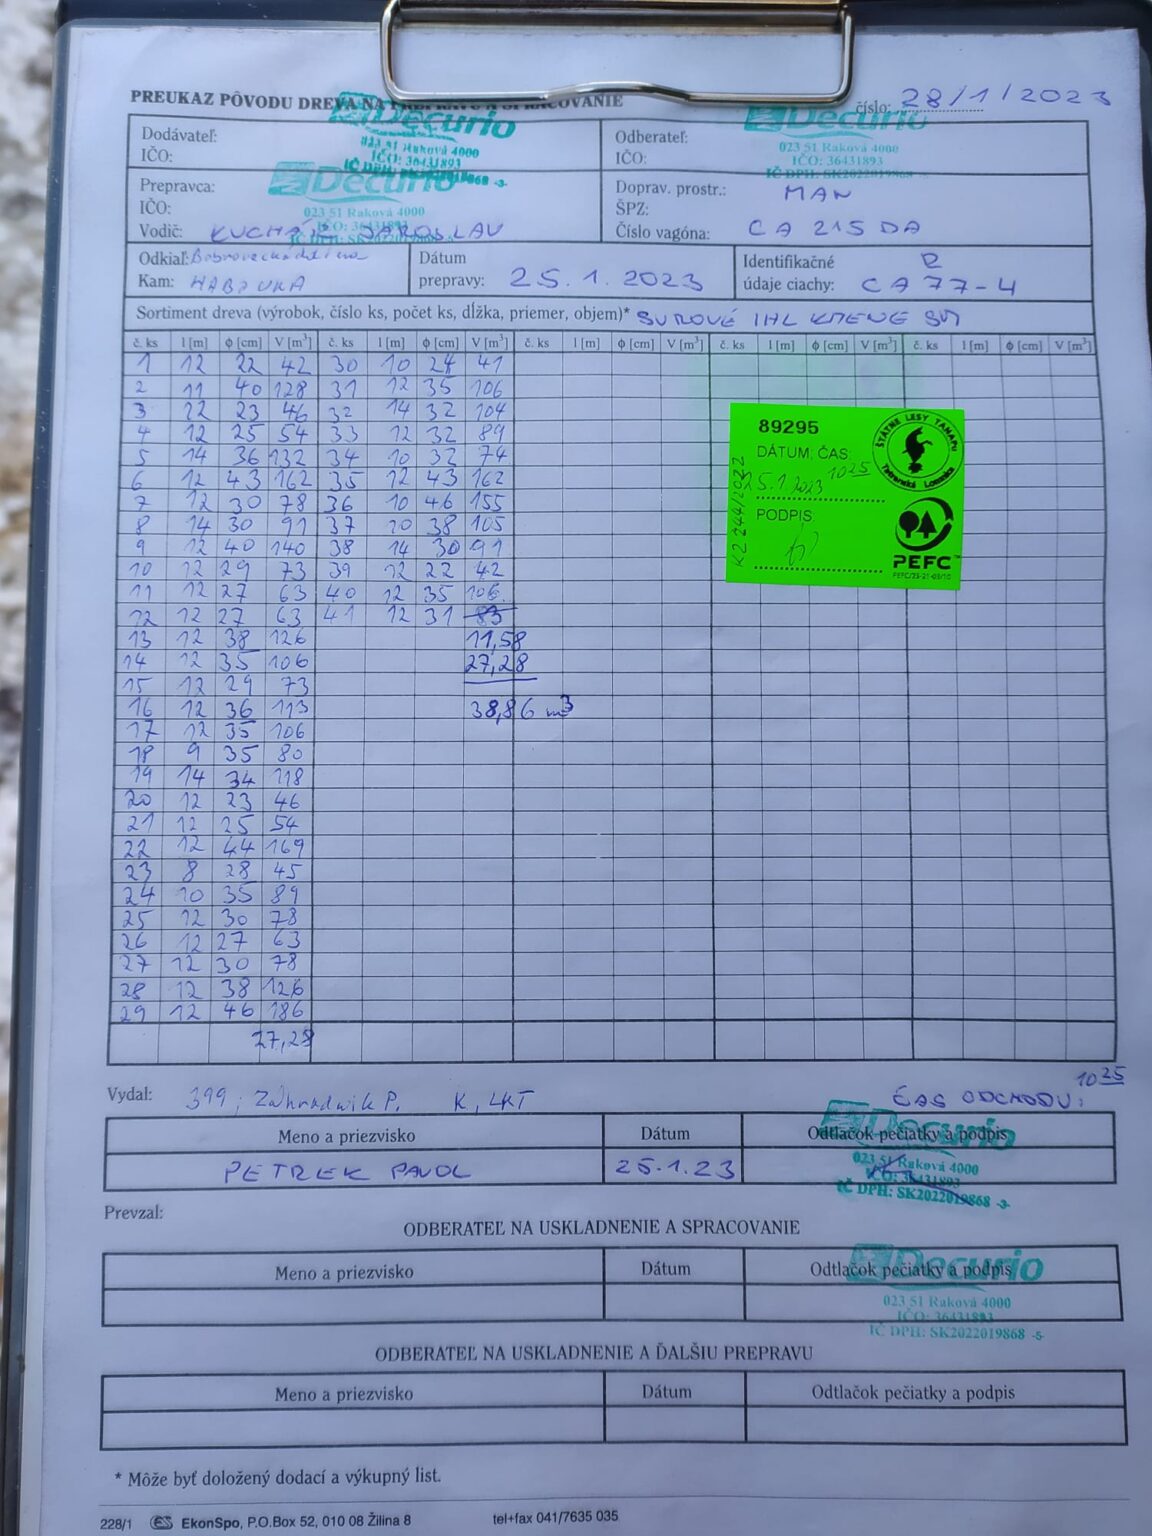 PREUKAZ PÔVODU DREVA NA PREPRAVU A SPRACOVANIE
číslo: 28/1/2023
Dodávateľ:
IČO:
Decurio
023 51 Raková 4000
IČO: 36431893
IČ DPH: SK2022019868 -3-
Odberateľ:
IČO:
Decurio
023 51 Raková 4000
IČO: 36431893
IČ DPH: SK2022019868
Prepravca:
IČO:
Vodič: KUCHÁR JAROSLAV
Decurio
023 51 Raková 4000
IČO: 36431893
Doprav. prostr.: MAN
ŠPZ:
Číslo vagóna: CA 215 DA
Odkiaľ: Bobrovecká dolina
Kam: HABOVKA
Dátum
prepravy: 25.1.2023
Identifikačné
údaje ciachy: CA 77-4
Sortiment dreva (výrobok, číslo ks, počet ks, dĺžka, priemer, objem)* SUROVÉ IHL KMENE SM
č. ks l [m] ϕ [cm] V [m³] č. ks l [m] ϕ [cm] V [m³] č. ks l [m] ϕ [cm] V [m³] č. ks l [m] ϕ [cm] V [m³] č. ks l [m] ϕ [cm] V [m³]
1 12 22 42 30 10 24 41
2 11 40 128 31 12 35 106
3 12 23 46 32 14 32 104
4 12 25 54 33 12 32 89
5 14 36 132 34 10 32 74
6 12 43 162 35 12 43 162
7 12 30 78 36 10 46 155
8 14 30 91 37 10 38 105
9 12 40 140 38 14 30 91
10 12 29 73 39 12 22 42
11 12 27 63 40 12 35 106
12 12 27 63 41 12 31 83
13 12 38 126 11,58
14 12 35 106 27,28
15 12 29 73
16 12 36 113 38,86 m3
17 12 35 106
18 9 35 80
19 14 34 118
20 12 23 46
21 12 25 54
22 12 44 169
23 8 28 45
24 10 35 89
25 12 30 78
26 12 27 63
27 12 30 78
28 12 38 126
29 12 46 186
27,28
89295
DÁTUM, ČAS:
25.1.2023 10 25
PODPIS
K2 244/2022
ŠTÁTNE LESY TANAPU
Tatranská Lomnica
PEFC™
PEFC/23-21-03/10
Vydal: 399, Záhradník P. K, LKT
ČAS ODCHODU: 10 25
Meno a priezvisko Dátum Odtlačok pečiatky a podpis
PETREK PAVOL 25.1.23
Decurio
023 51 Raková 4000
IČO: 36431893
IČ DPH: SK2022019868 -3-
Prevzal:
ODBERATEĽ NA USKLADNENIE A SPRACOVANIE
Meno a priezvisko Dátum Odtlačok pečiatky a podpis
Decurio
023 51 Raková 4000
IČO: 36431893
IČ DPH: SK2022019868 -5-
ODBERATEĽ NA USKLADNENIE A ĎALŠIU PREPRAVU
Meno a priezvisko Dátum Odtlačok pečiatky a podpis
* Môže byť doložený dodací a výkupný list.
228/1 EkonSpo, P.O.Box 52, 010 08 Žilina 8 tel+fax 041/7635 035